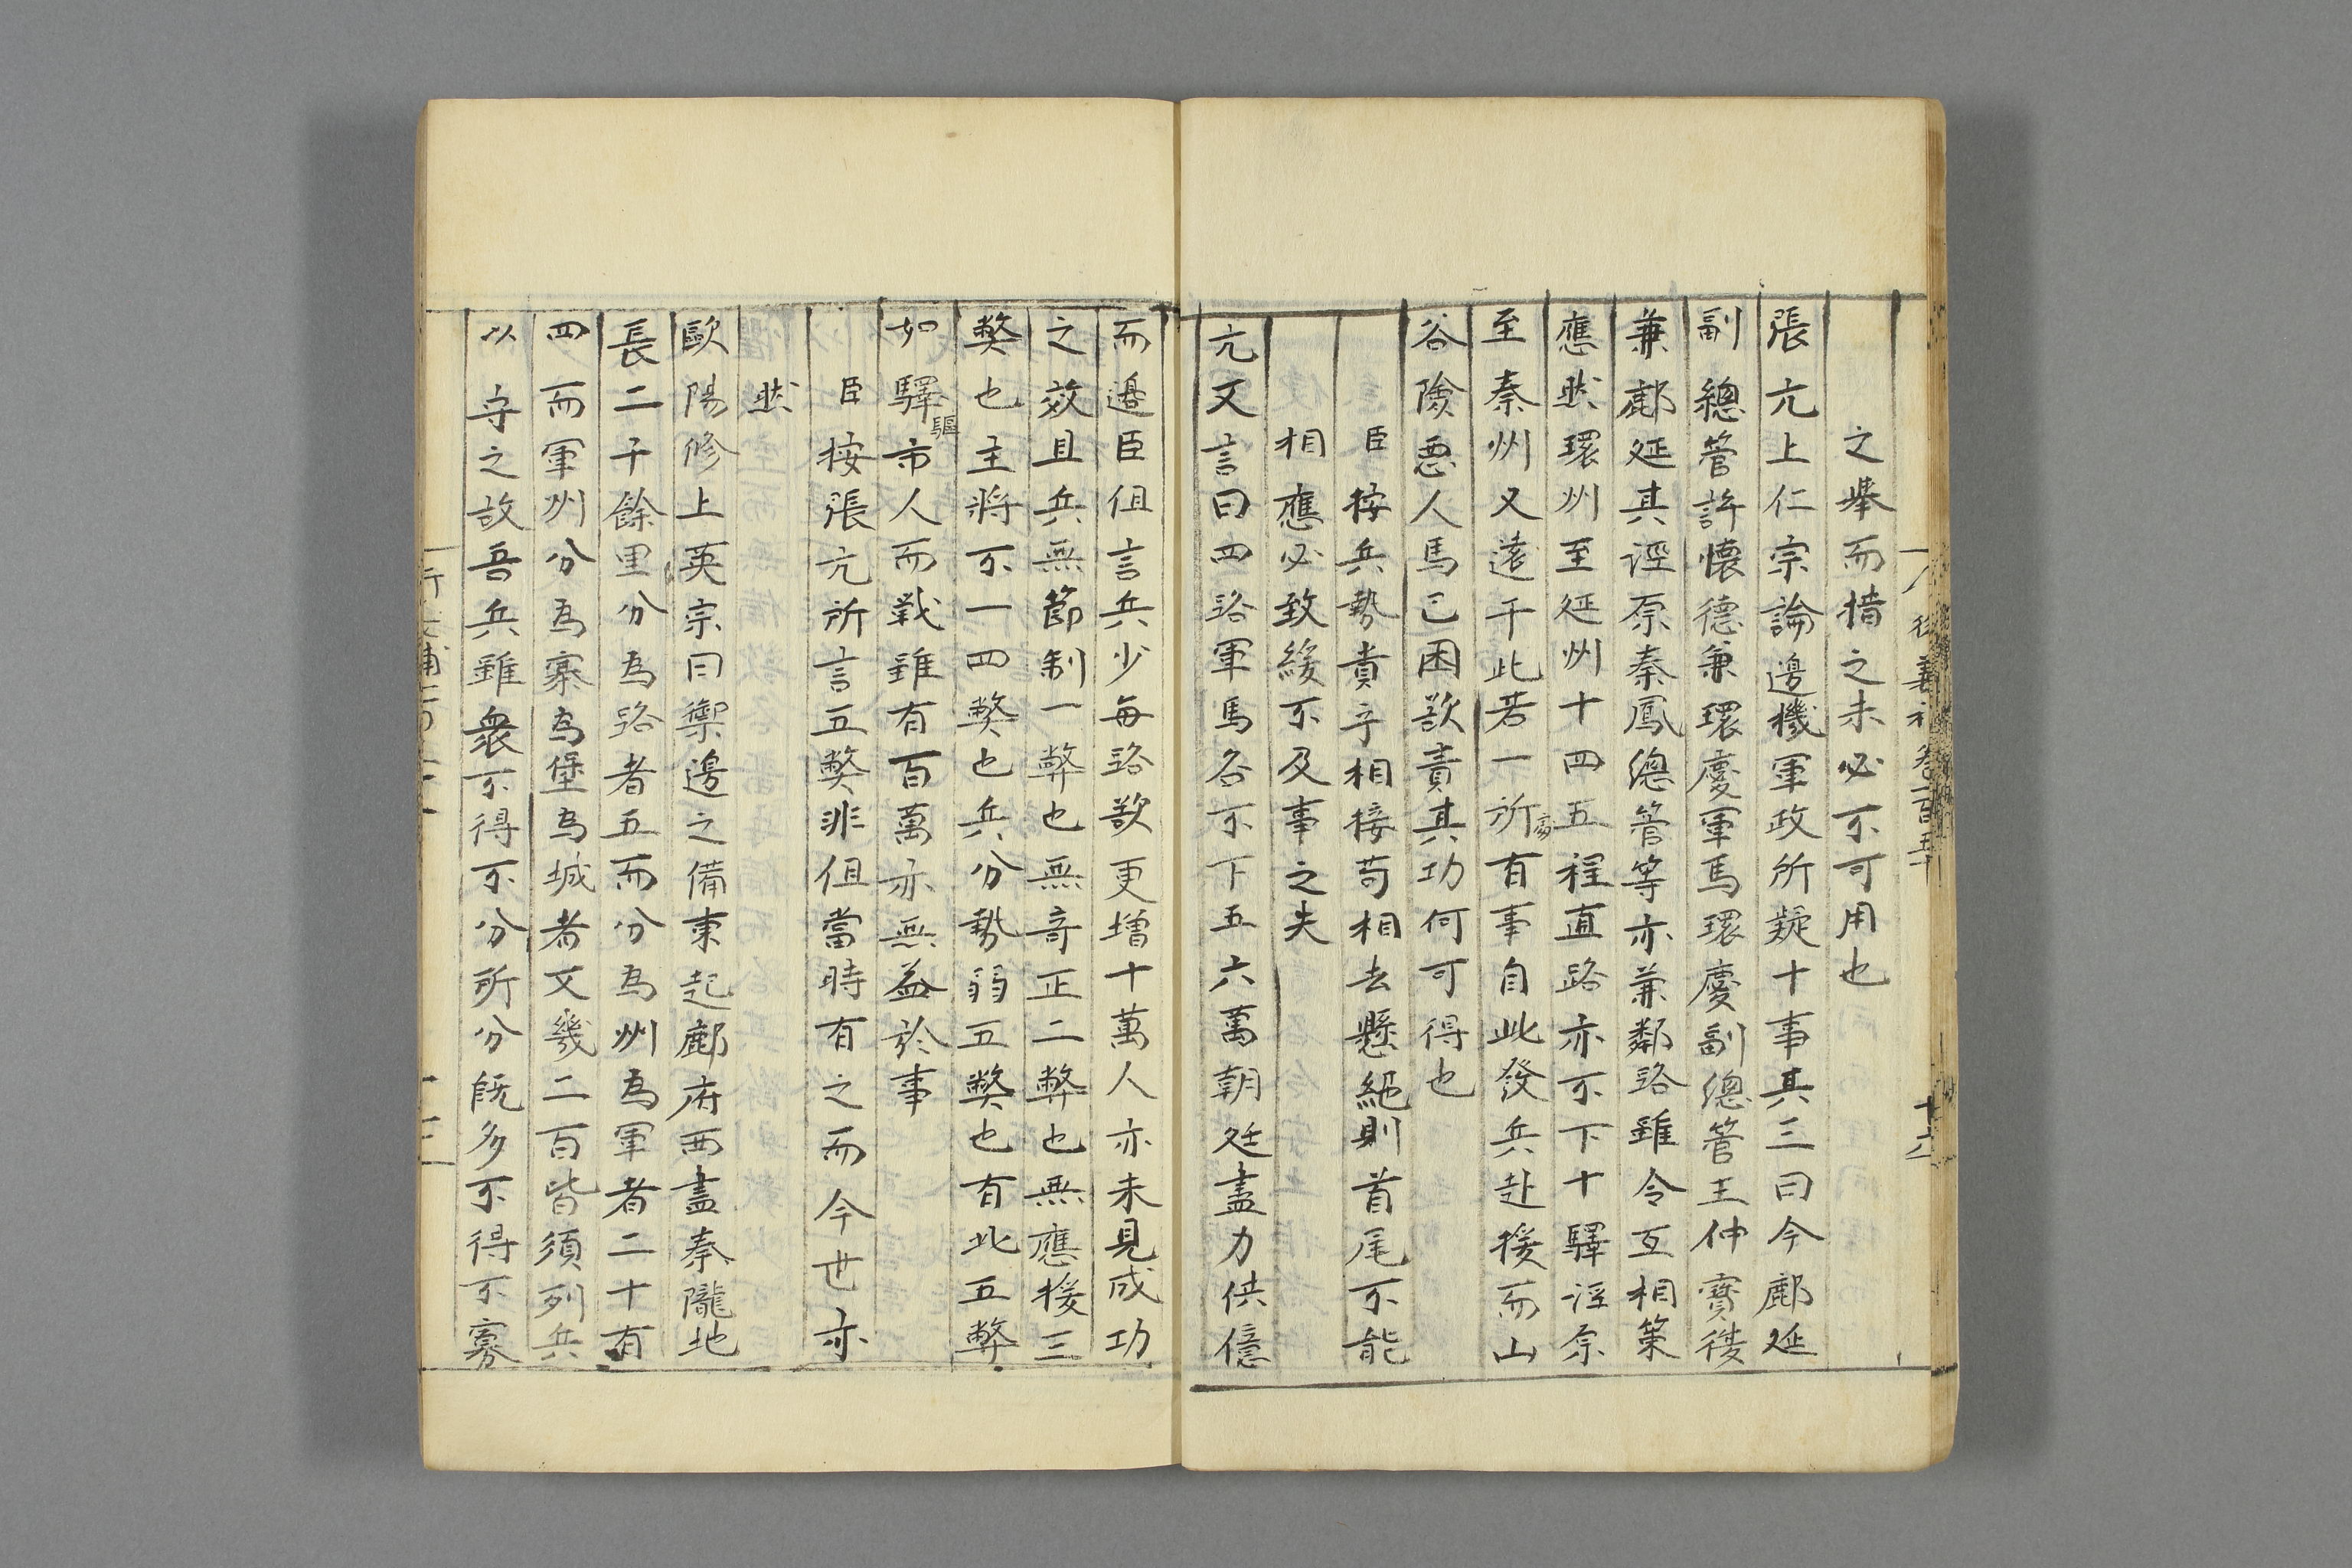 之舉而措之未必不可用也
張亢上仁宗論邊機軍政所疑十事其三曰今鄜延
副總管許懷德兼環慶軍馬環慶副總管王仲寶復
兼鄜延其涇原秦鳳總管等亦兼鄰路雖令互相策
應然環州至延州十四五程直路亦不下十驛涇原
至秦州又遠于此若一所有事自此發兵赴援而山
谷險惡人馬已困欲責其功何可得也
臣按兵勢貴乎相接苟相去懸絕則首尾不能
相應必致緩不及事之失
亢又言曰四路軍馬各不下五六萬朝廷盡力供億
而邊臣但言兵少每路欲更增十萬人亦未見成功
之效且兵無節制一弊也無奇正二弊也無應援三
獘也主將不一四獘也兵分勢弱五獘也有此五弊
如驛驅市人而戰雖有百萬亦無益於事
臣按張亢所言五獘非但當時有之而今世亦
然
歐陽修上英宗曰禦邊之備東起鄜府西盡秦隴地
長二千餘里分為路者五而分為州為軍者二十有
四而軍州分為寨為堡為城者又幾二百皆須列兵
以守之故吾兵雖衆不得不分所分既多不得不寡